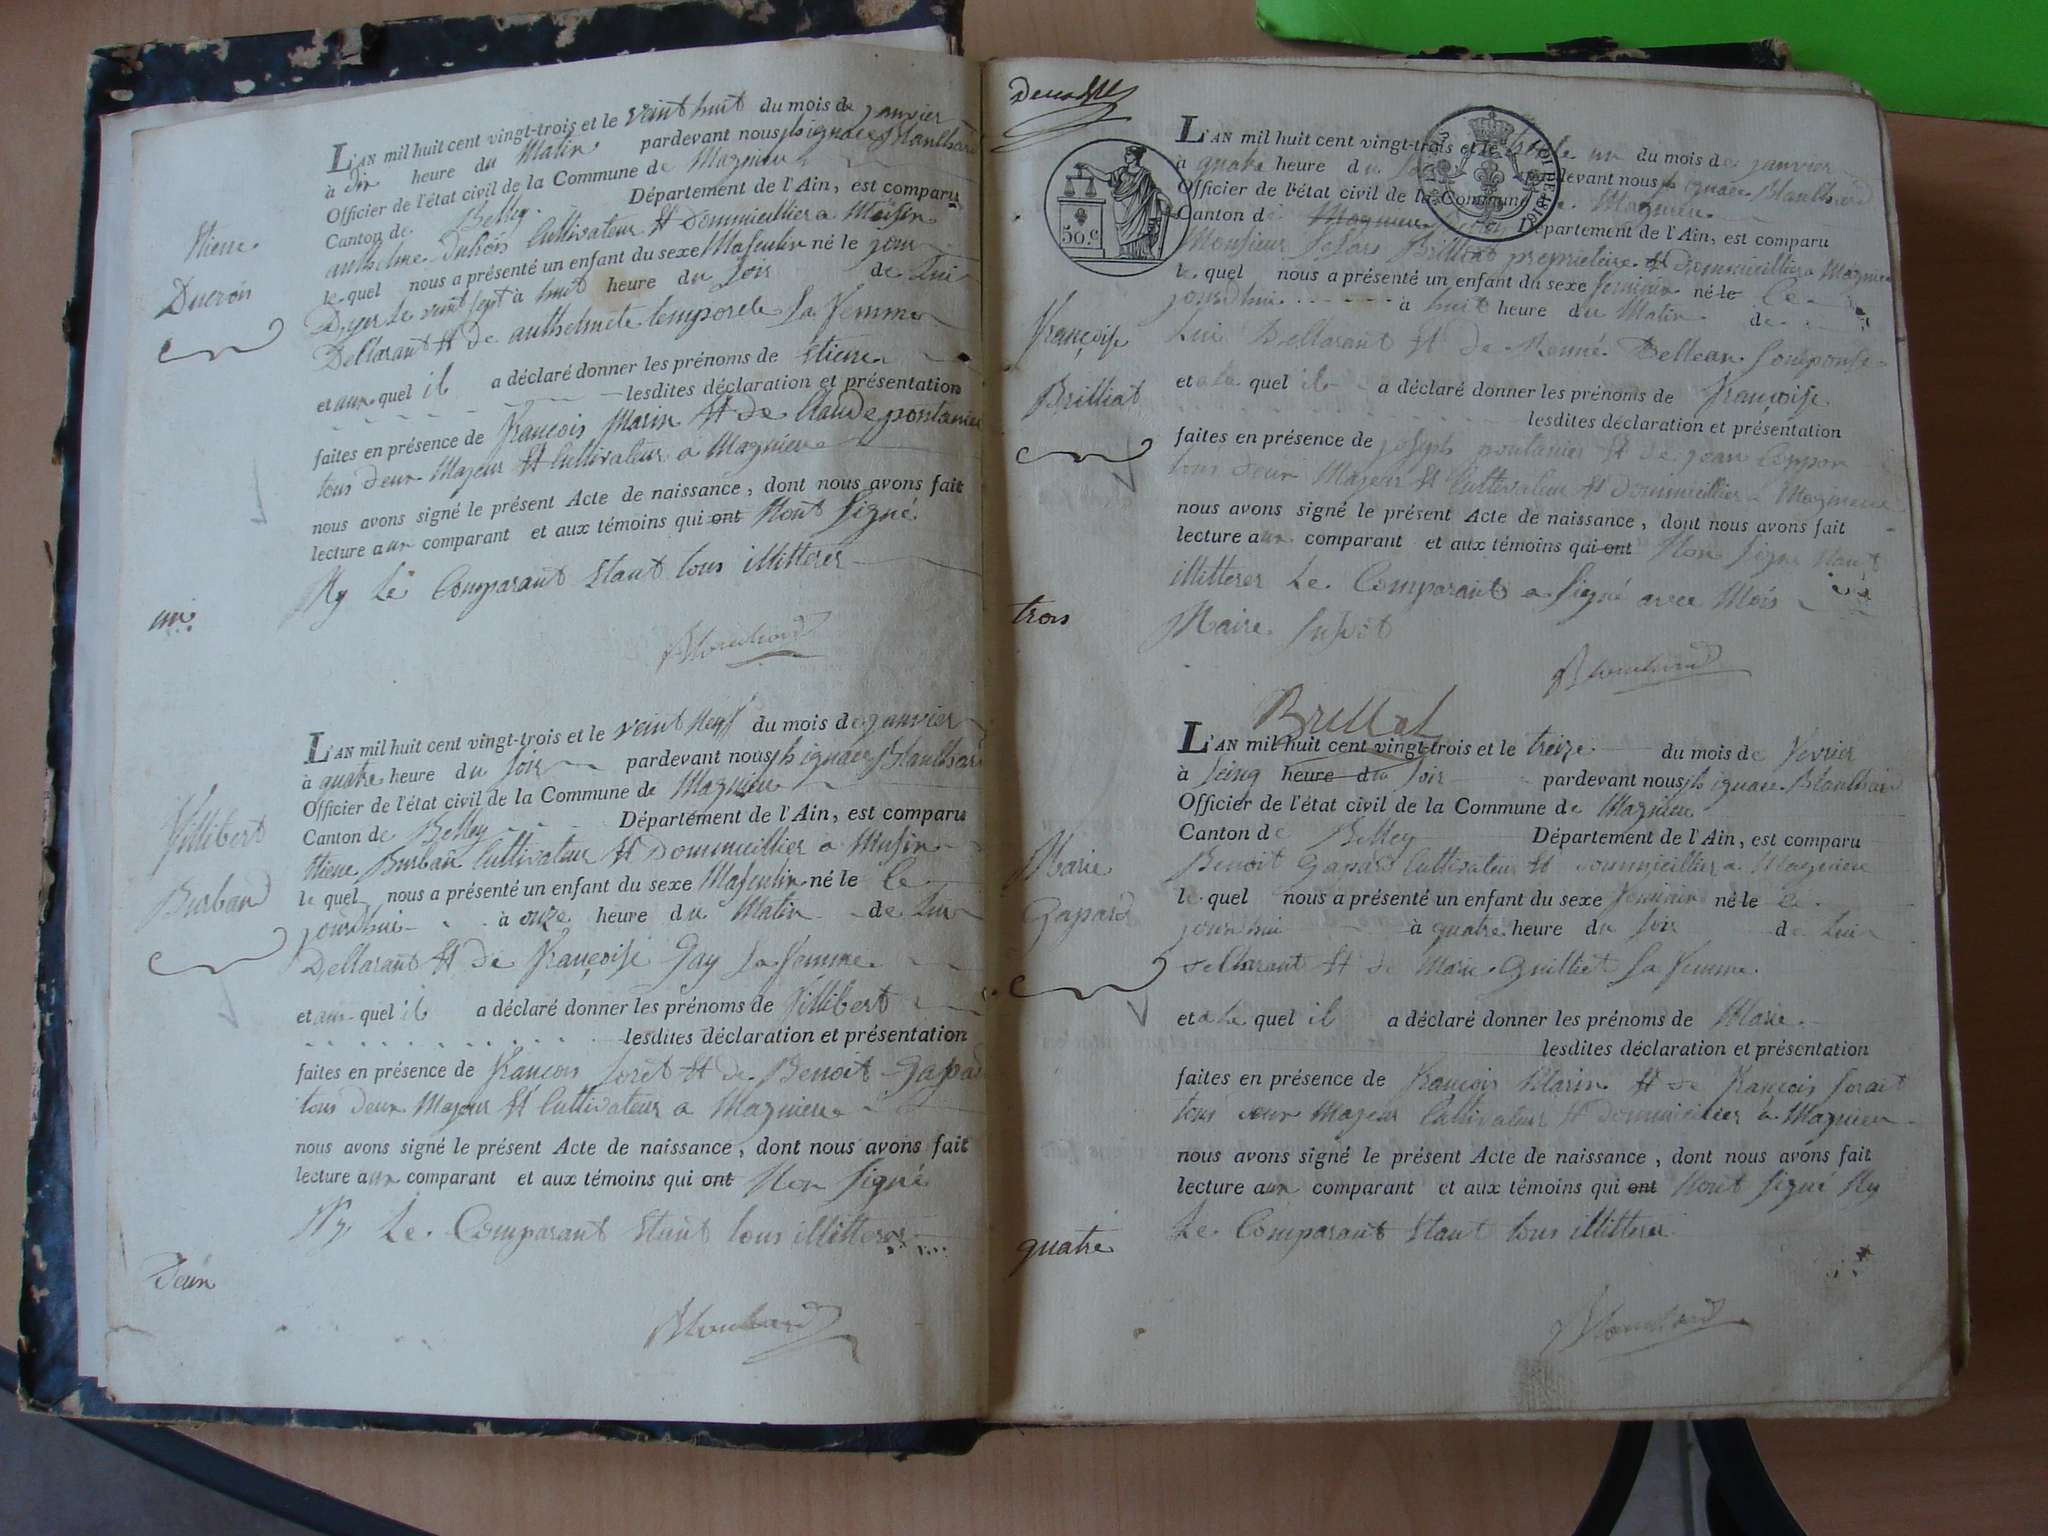 L'AN mil huit cent vingt-trois et le veint huit du mois de janvier
à dix heure du Matin pardevant nous
Officier de l'état civil de la Commune de Magnieu
Canton de Belley. Département de l'Ain, est comparu
anthelme Cultivateur Et Dommicillier a
le quel nous a présenté un enfant du sexe Masculin né le jour
Dyer Le veint sept à huit heure du soir de Lui
Dellarant Et de La Femme
et aux quel il a déclaré donner les prénoms de Etiene
lesdites déclaration et présentation
faites en présence de François Marin Et de Claude pontanier
tous deux Majeur Et Cultivateur a Magnieu
nous avons signé le présent Acte de naissance, dont nous avons fait
lecture aux comparant et aux témoins qui ont Nont Signé
Ny Le Comparant Etant tous illitterer
Etiene
Ducrois
un
L'AN mil huit cent vingt-trois et le veint Neuf du mois de janvier
à quatre heure du soir pardevant nous
Officier de l'état civil de la Commune de Magnieu
Canton de Belley Département de l'Ain, est comparu
Etiene Burban Cultivateur Et Dommicillier a Musin
le quel nous a présenté un enfant du sexe Masculin né le Le
jourdhui à onze heure du Matin de Lui
Dellarant Et de Françoise Gay La Femme
et aux quel il a déclaré donner les prénoms de Fillibert
lesdites déclaration et présentation
faites en présence de François Et de Benoit Gapard
tous deux Majeur Et Cultivateur a Magnieu
nous avons signé le présent Acte de naissance, dont nous avons fait
lecture aux comparant et aux témoins qui ont Non Signé
Ny Le Comparant Etant tous illitterer
Fillibert
Burband
Deux
50.c
LOI DE 1816
L'AN mil huit cent vingt-trois et le trente un du mois de janvier
à quatre heure du pardevant nous
Officier de l'état civil de la Commune de Magnieu
Canton de Département de l'Ain, est comparu
Monsieur Brilliat proprietaire Et Dommicillier a Magnieu
le quel nous a présenté un enfant du sexe Feminin né le Le
jourdhui à huit heure du Matin de
Lui Dellarant Et de
et a la quel il a déclaré donner les prénoms de Françoise
lesdites déclaration et présentation
faites en présence de joseph pontanier Et de jean
tous deux Majeur Et Cultivateur Et Dommicillier a Magnieu
nous avons signé le présent Acte de naissance, dont nous avons fait
lecture aux comparant et aux témoins qui ont Non Signé Etant
illitterer Le Comparant a Signé avec Mois
Maire
Françoise
Brilliat
trois
L'AN mil huit cent vingt-trois et le treize du mois de Fevrier
à Seinq heure du soir pardevant nous
Officier de l'état civil de la Commune de Magnieu
Canton de Belley Département de l'Ain, est comparu
Benoit Gapard Cultivateur Et Dommicillier a Magnieu
le quel nous a présenté un enfant du sexe Feminin né le Le
jourdhui à quatre heure du soir de Lui
dellarant Et de Marie Guilliet La Femme
et a la quel il a déclaré donner les prénoms de Marie
lesdites déclaration et présentation
faites en présence de François Marin Et de François
tous deux Majeur Cultivateur Et Dommicillier a Magnieu
nous avons signé le présent Acte de naissance, dont nous avons fait
lecture aux comparant et aux témoins qui ont Nont Signé Ny
Le Comparant Etant tous illitterer
Marie
Gapard
quatre